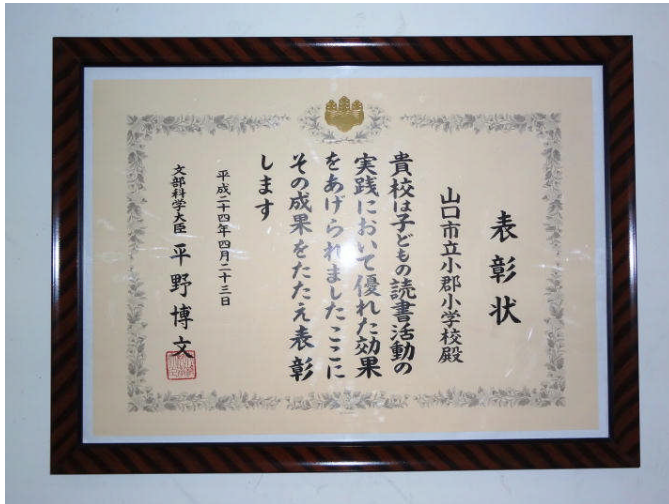 表彰状
山口市立小郡小学校殿
貴校は子どもの読書活動の
実践において優れた効果
をあげられましたここに
その成果をたたえ表彰
します
平成二十四年四月二十三日
文部科学大臣 平野博文